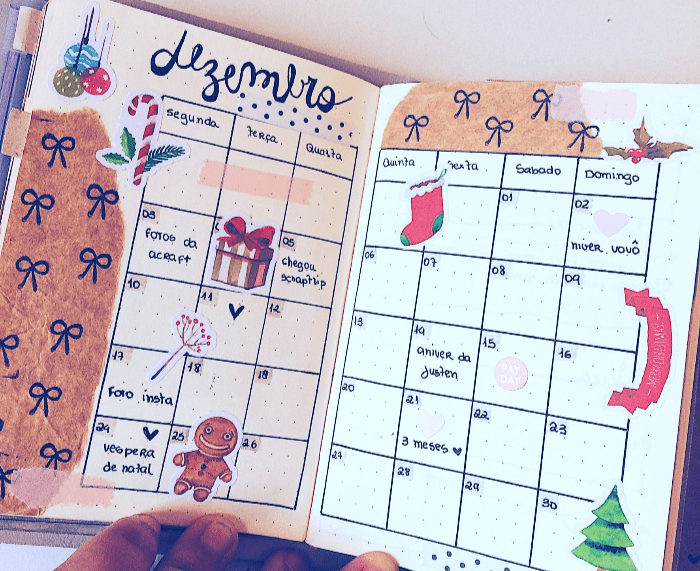 dezembro
Segunda Terça. Quarta
03 05
fotos da
acraft
chegou
scraptrip
10 11 12
17 18 19
Foto insta
24 25 26
vespera
de natal
Quinta Sexta Sabado Domingo
01 02
niver vovô
06 07 08 09
13 14 15 16
aniver da
Justen
PAY
DAY
20 21 22 23
3 meses
27 28 29 30